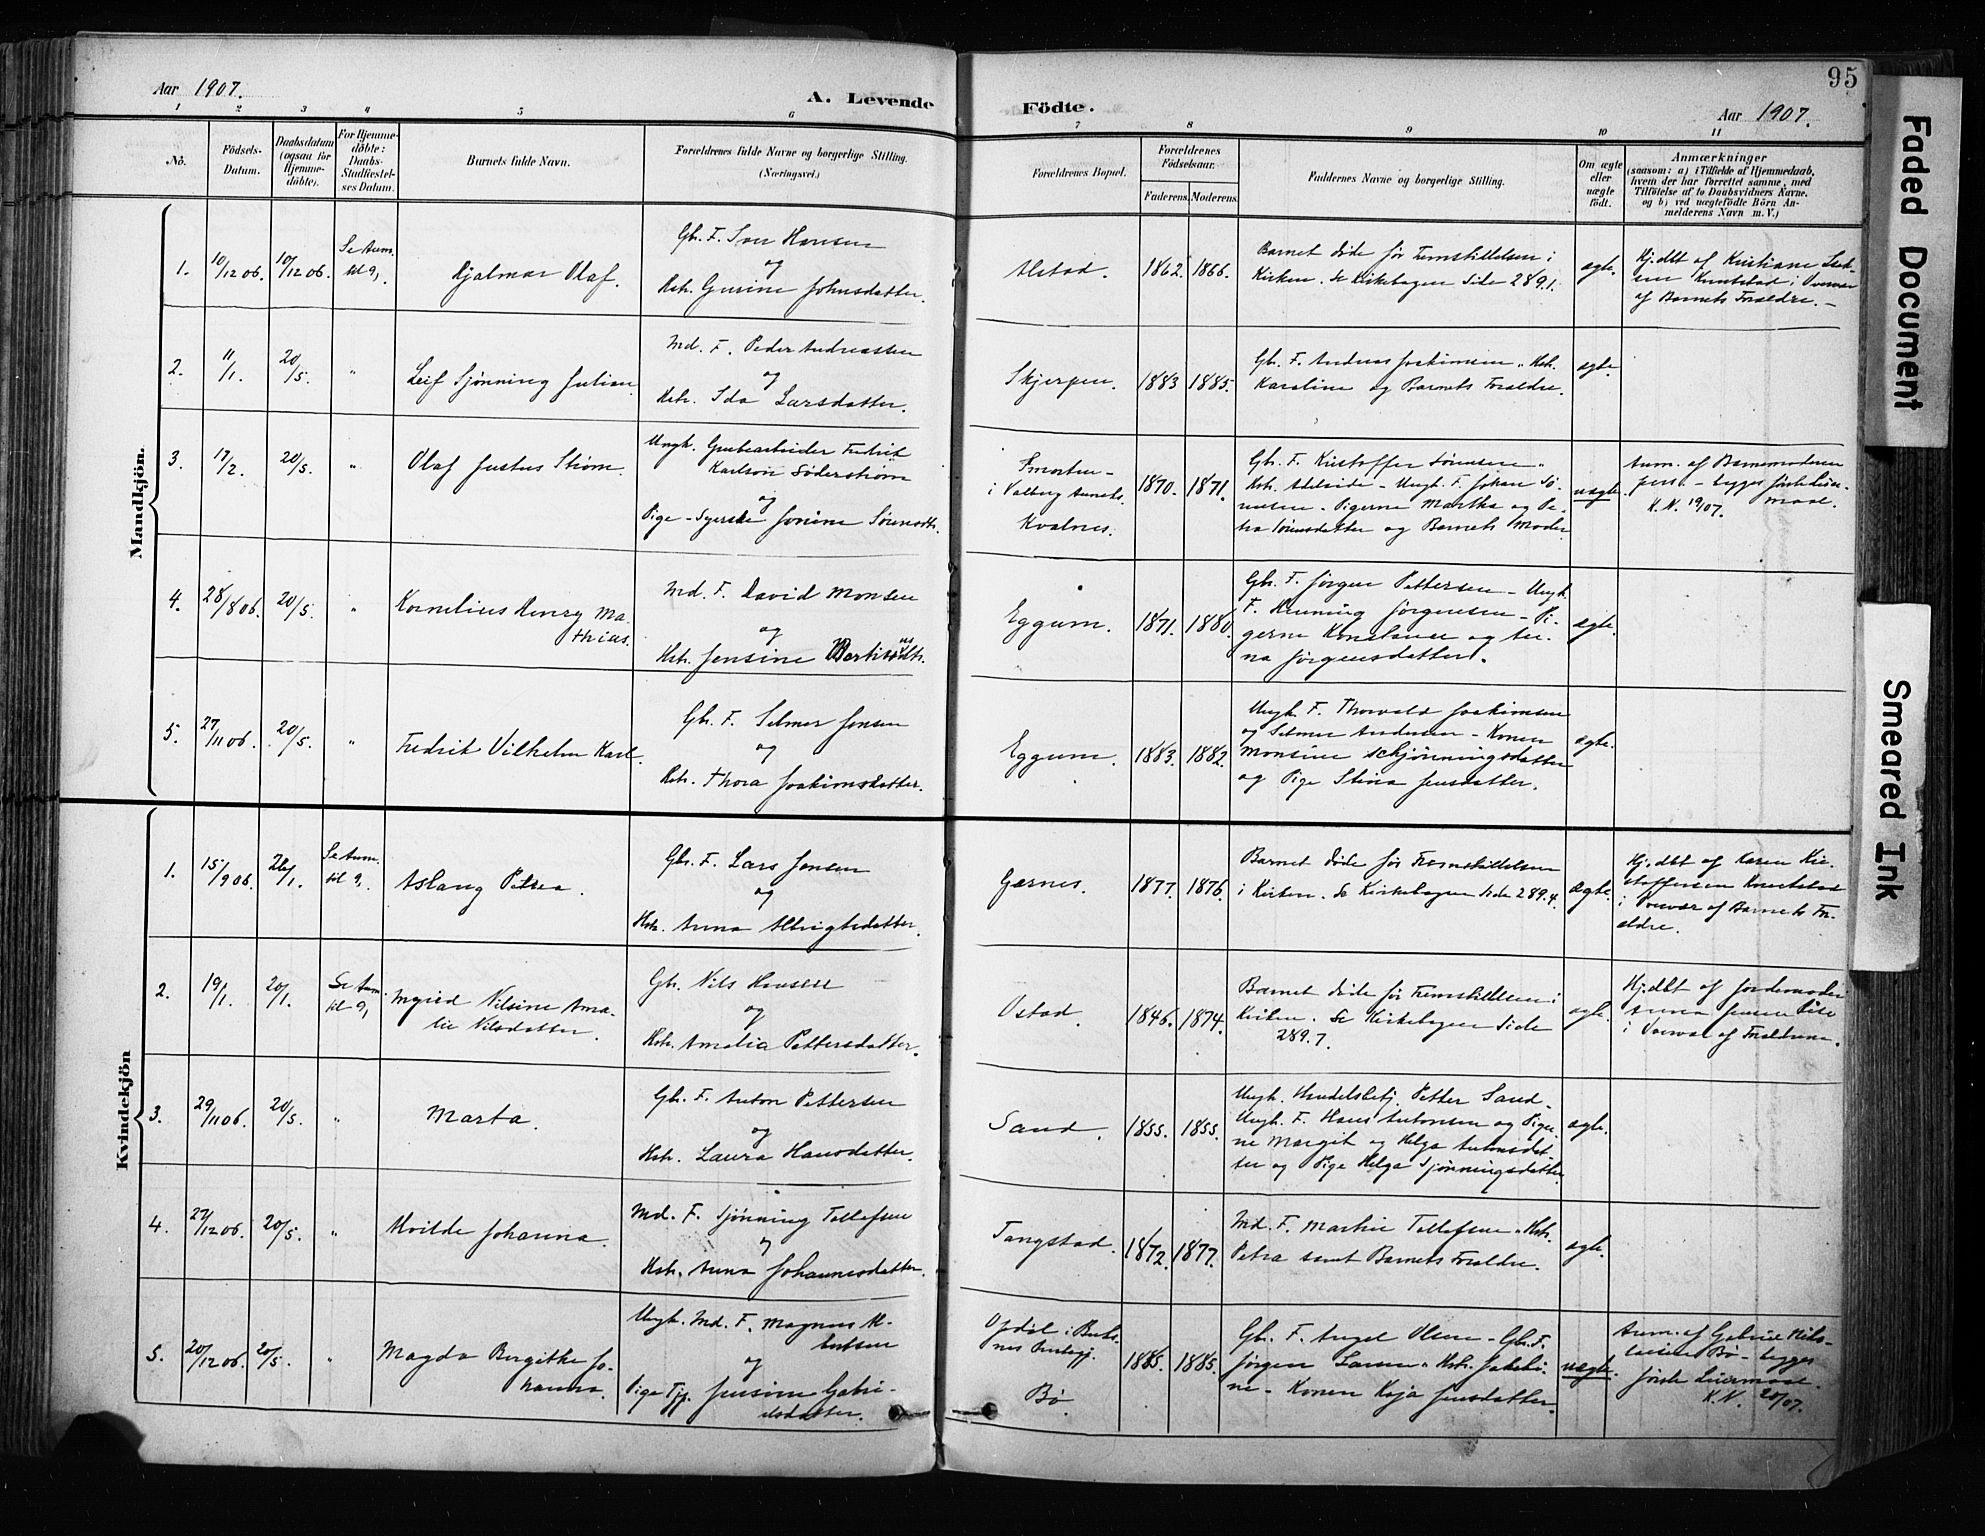 Aar 1907.
A. Levende
Födte.
Aar 1907.
95
1 2 3 4 5 6 7 8 9 10 11
No.
Födsels-
Datum.
Daabsdatum
(ogsaa for
Hjemme-
döbte).
For Hjemme-
döbte:
Daabs-
Stadfæstel-
ses Datum.
Barnets fulde Navn.
Forældrenes fulde Navne og borgerlige Stilling.
(Næringsvei.)
Forældrenes Bopæl.
Forældrenes
Födselsaar.
Faderens. Moderens.
Faddernes Navne og borgerlige Stilling.
Om ægte
eller
uægte
födt.
Anmærkninger
(saasom: a) i Tilfælde af Hjemmedaab,
hvem der har forrettet samme, med
Tilföielse af to Daabsvidners Navne.
og b) ved uægtefödte Börn An-
melderens Navn m. V.)
Mandkjön.
1.
10/12 06.
10/12 06.
Se Anm.
til 9,
Hjalmar Olaf.
Gb. F. Hansen
og
Hstr. Gurine Johnsdatter.
Alstad.
1862. 1866.
Barnet døde før Fremstillelsen i
Kirken. Se Kirkebogen Side 289.1.
ægte.
Hj.dbt af Kristiane
Knutstad i Overvær
af Barnets Forældre. -
2.
11/1.
20/5.
"
Leif Sjønning Julian.
Md. F. Peder Andreassen
og
Hstr. Ida Larsdatter.
Skjerpen.
1883 1885.
Gb. F. Andreas Joakimsen " Hstr.
Karoline og Barnets Forældre.
ægte.
3.
17/2.
20/5.
"
Olaf Justus Strøm.
Ungk. Grubearbeider Fredrik
Karlson Söderström
og
Pige - Syerske Jonine Sörensdtr.
Smorten -
i Valberg Annets.
Kvalnes.
1870. 1871.
Gb. F. Kristoffer Sørensen "
Hstr. Adelaide - Ungk. F. Johan Sø-
rensen - Pigerne Martha og Pe-
tra Sørensdatter og Barnets Moder
uægte.
Anm. af Barnemoderen
pers. - begges første Leier-
maal.
K. N. 19/07.
4.
28/8 06.
20/5.
"
Kornelius Henry Ma-
thias.
Md. F. David Monsen
og
Hstr. Jensine
Eggum.
1871. 1880.
Gb. F. Jørgen Pettersen - Ungk.
F. Henning Jørgensen - Pi-
gerne Konstanse og
na Jørgensdatter.
ægte.
5.
27/11 06.
20/5.
"
Fredrik Vilhelm Karl.
Gb. F. Selmer Jensen
og
Hstr. Thora Joakimsdatter.
Eggum.
1883. 1882.
Ungk. F. Thorvald Joakimsen
og Selmer Andersen - Konen
Monsine Schjønningsdatter
og Pige Stina Jensdatter.
ægte.
Kvindekjön
1.
15/9 06.
26/1.
Se Anm.
til 9,
Aslaug Petrea.
Gb. F. Lars Jensen
og
Hstr. Anna Albrigtsdatter.
Gærnes.
1877. 1876.
Barnet døde før Fremstillelsen
i Kirken. Se Kirkebogen Side 289.4.
ægte.
Hj.dbt af Karen Kri-
stoffersen Knutstad
i Overvær af Barnets For-
ældre.
2.
19/1.
20/1.
Se Anm.
til 9,
Ingrid Nilsine Ama-
lie Nilsdatter.
Gb. Nils Hansen
og
Hstr. Amalia Pettersdatter.
Ostad.
1846. 1874.
Barnet døde før Fremstillelsen i
Kirken. Se Kirkebogen Side
289.7.
ægte.
Hj.dbt af Jordemoder
Anna Jensen
i Overvær af Forældrene.
3.
29/11 06.
20/5.
"
Marta.
Gb. F. Anton Pettersen
og
Hstr. Laura Hansdatter.
Sand.
1855. 1855.
Ungk. Handelsbetj. Petter Sand -
Ungk. F. Hans Antonsen og Piger-
ne Margit og Helga Antonsdat-
ter og Pige Helga Sjønningsdatter
ægte.
4.
27/12 06.
20/5.
"
Alvilde Johanna.
Md. F. Sjønning Tollefsen
og
Hstr. Anna Johannesdatter.
Tangstad.
1872. 1877.
Md. F. Martin Tollefsen " Hstr.
Petra samt Barnets Forældre.
ægte.
5.
20/12 06.
20/5.
"
Magda Bergitte Jo-
hanna.
Ungk. Md. F. Magnus
og
Pige Tjp. Jensine Gabri-
elsdatter.
Opdøl i Buks-
nes Prestegj.
Bø.
1885. 1885.
Gb. F. Angel Olsen - Gb. F.
Jørgen Larsen " Hstr. Jakobi-
ne - Konen Kaja Jensdatter.
uægte.
Anm. af Gabriel
Bø - begges
første Leiermaal.
K. N. 20/07.
Faded Document
Smeared Ink